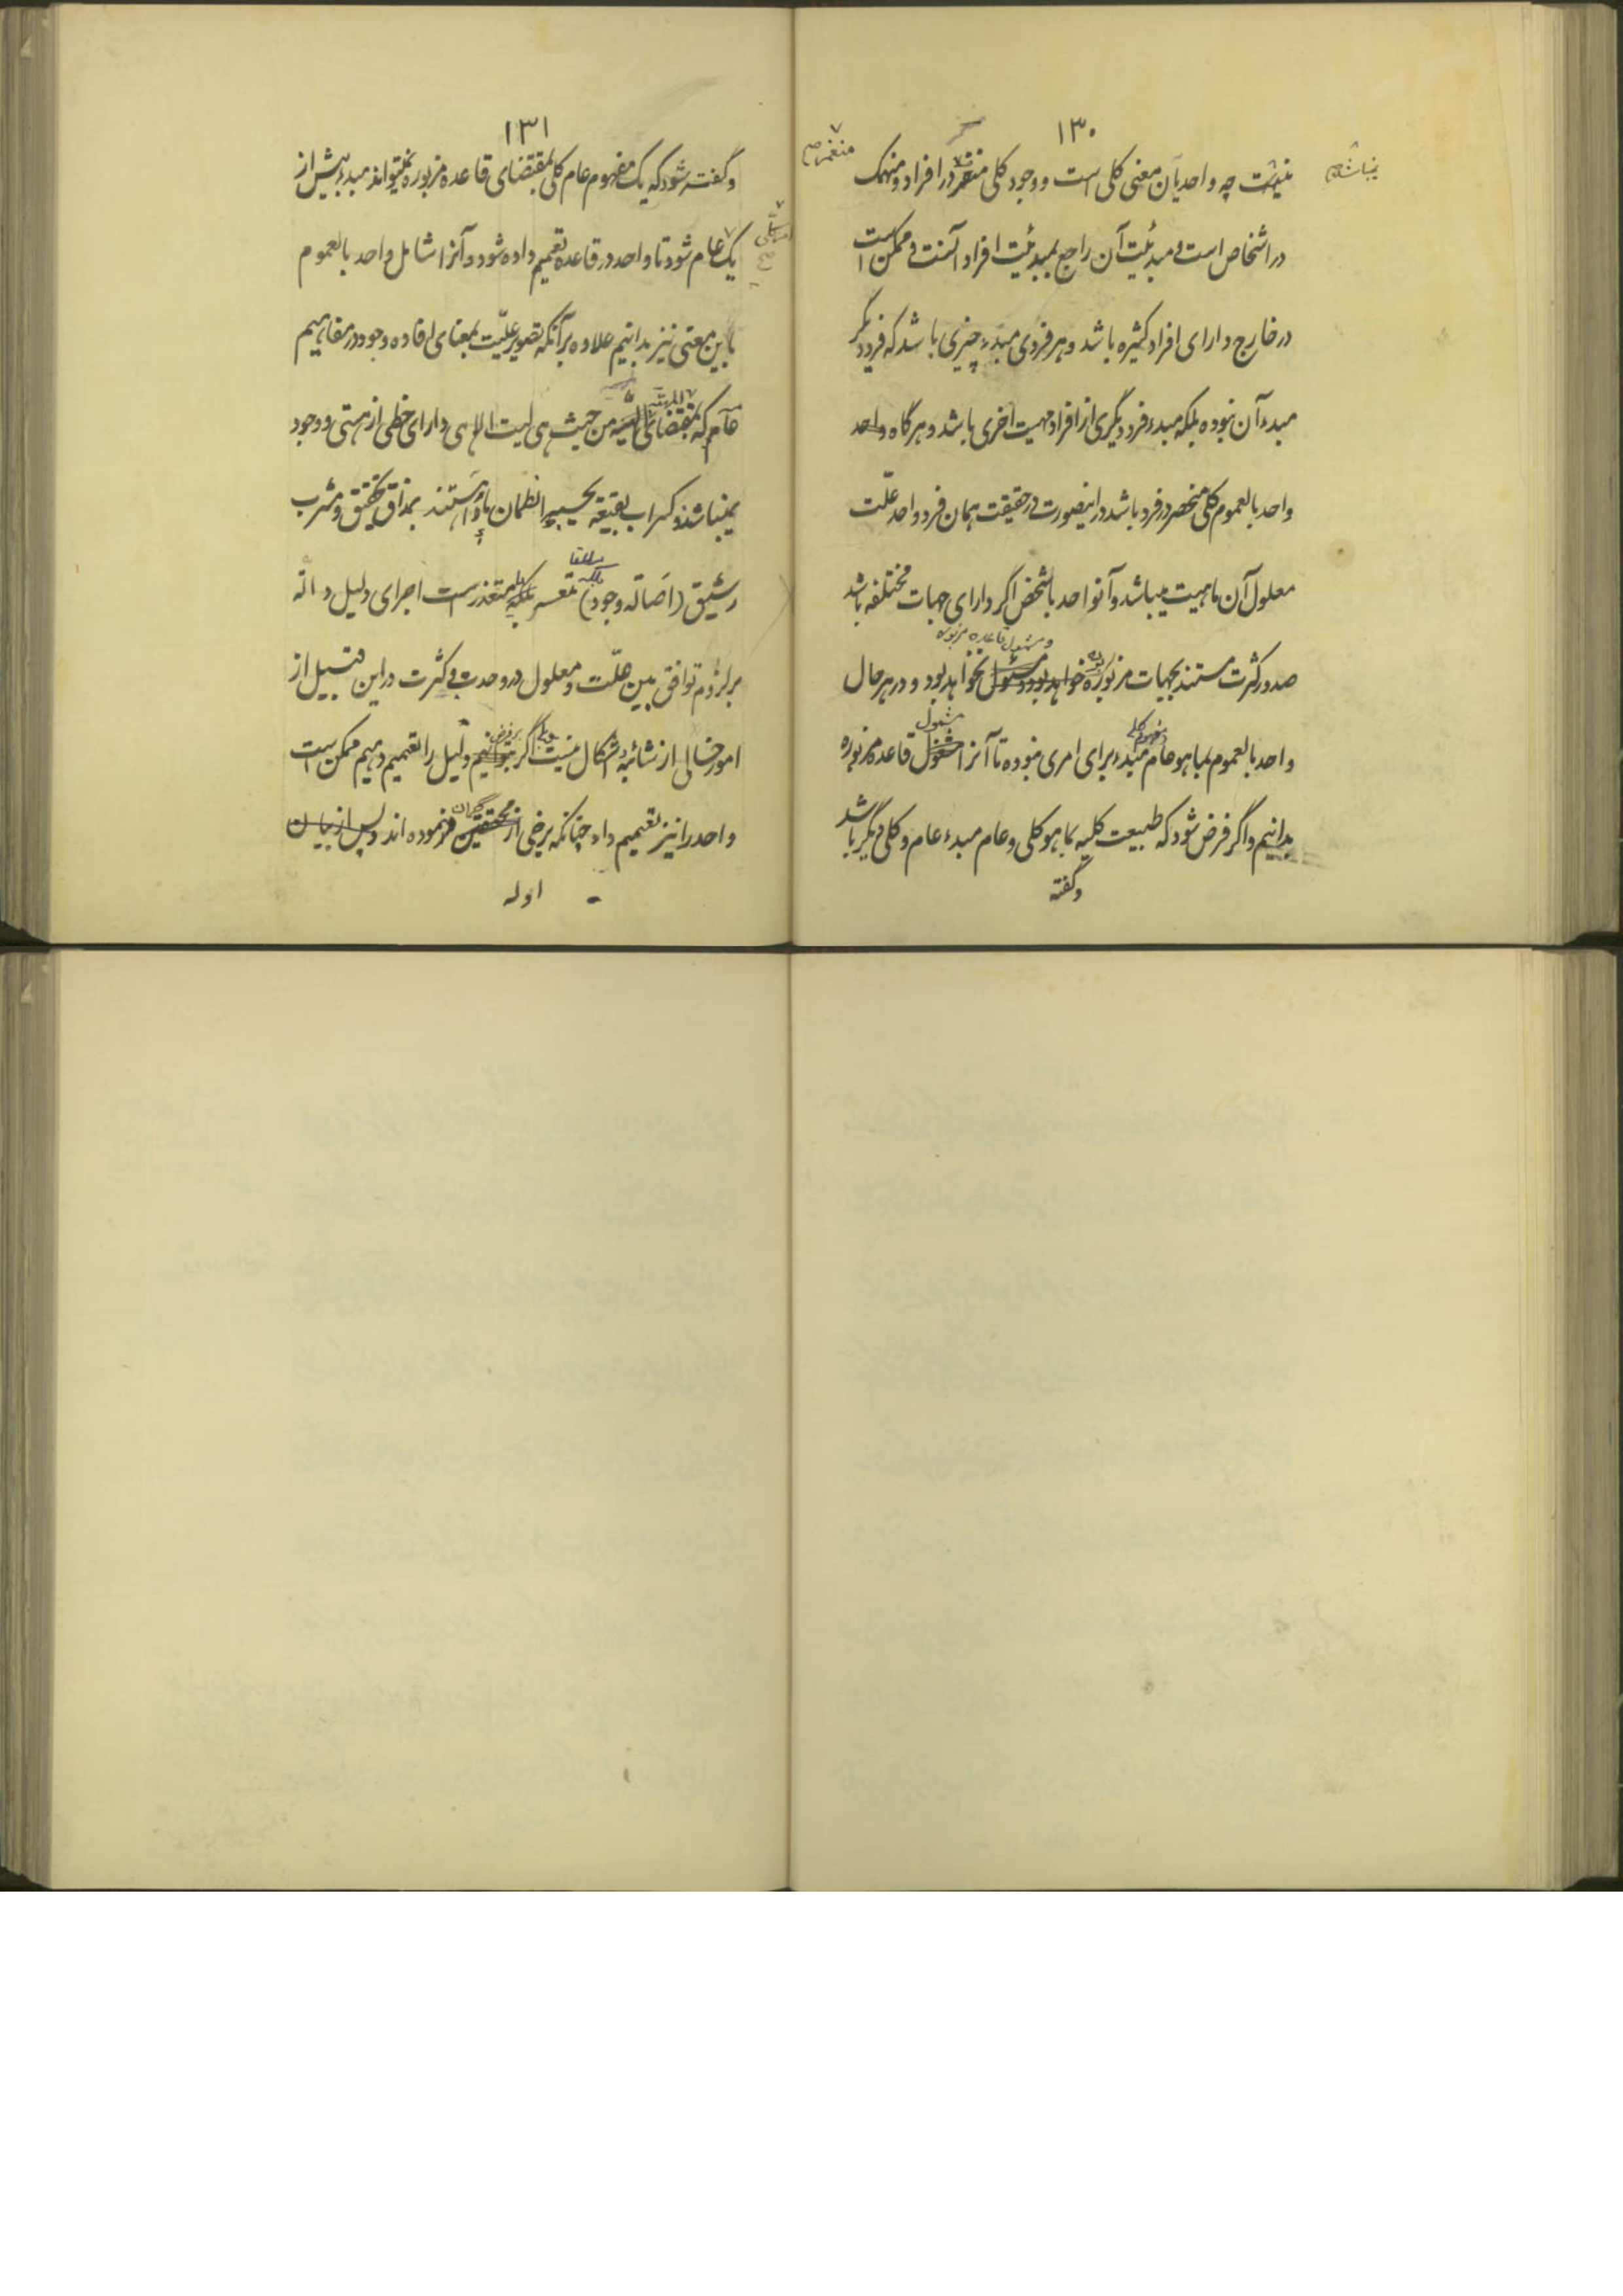 ۱۳۰
نیست چه واحد بآن معنی کلی است و وجود کلی منغمر در افراد و منهمک
منغمر صح
در اشخاص است و مبدئیت آن راجع بمبدئیت افراد آنست و ممکن است
در خارج دارای افراد کثیره باشد و هر فردی مبدء چیزی باشد که فرد دیگر
مبدء آن نبوده بلکه مبدء فرد دیگری از افراد مهیت اخری باشد و هرگاه واحد
واحد بالعموم کلی منحصر در فرد باشد در اینصورت در حقیقت همان فرد واحد علّت
معلول آن ماهیت میباشد و آنواحد بالشخص اگر دارای جهات مختلفه باشد
و مشمول قاعده مزبوره
صدور کثرت مستند بجهات مزبوره خواهد بود و مشمول نخواهد بود و در هر حال
مفهوم کلی مشمول
واحد بالعموم بما هو عام مبدء برای امری نبوده تا آنرا مشمول قاعده مزبوره
بدانیم و اگر فرض شود که طبیعت کلیه بما هو کلی و عام مبدء عام و کلی دیگر باشد
و گفته
۱۳۱
و گفته شود که یک مفهوم عام کلی بمقتضای قاعده مزبوره نمیتواند مبدء بیش از
یک عام شود تا واحد در قاعده تعمیم داده شود و آنرا شامل واحد بالعموم
باین معنی نیز بدانیم علاوه بر آنکه تصویر علیّت بمعنای افاده وجود در مفاهیم
عامه که بمقتضای المهیة من حیث هی لیست الا هی دارای حظی از هستی و وجود
نمیباشند و کسراب بقیعة یحسبه الظمان ماءً هستند بمذاق تحقیق و مشرب
رشیق (اصاله وجود) متعسر بلکه متعذر است اجرای دلیل داله
بر لزوم توافق بین علّت و معلول در وحدت و کثرت در این قبیل از
امور خالی از شائبهٔ اشکال نیست اگر بتوانیم دلیل را تعمیم دهیم ممکن است
واحد را نیز تعمیم داد چنانکه برخی از محققین فرموده اند و پس از بیان
ادله